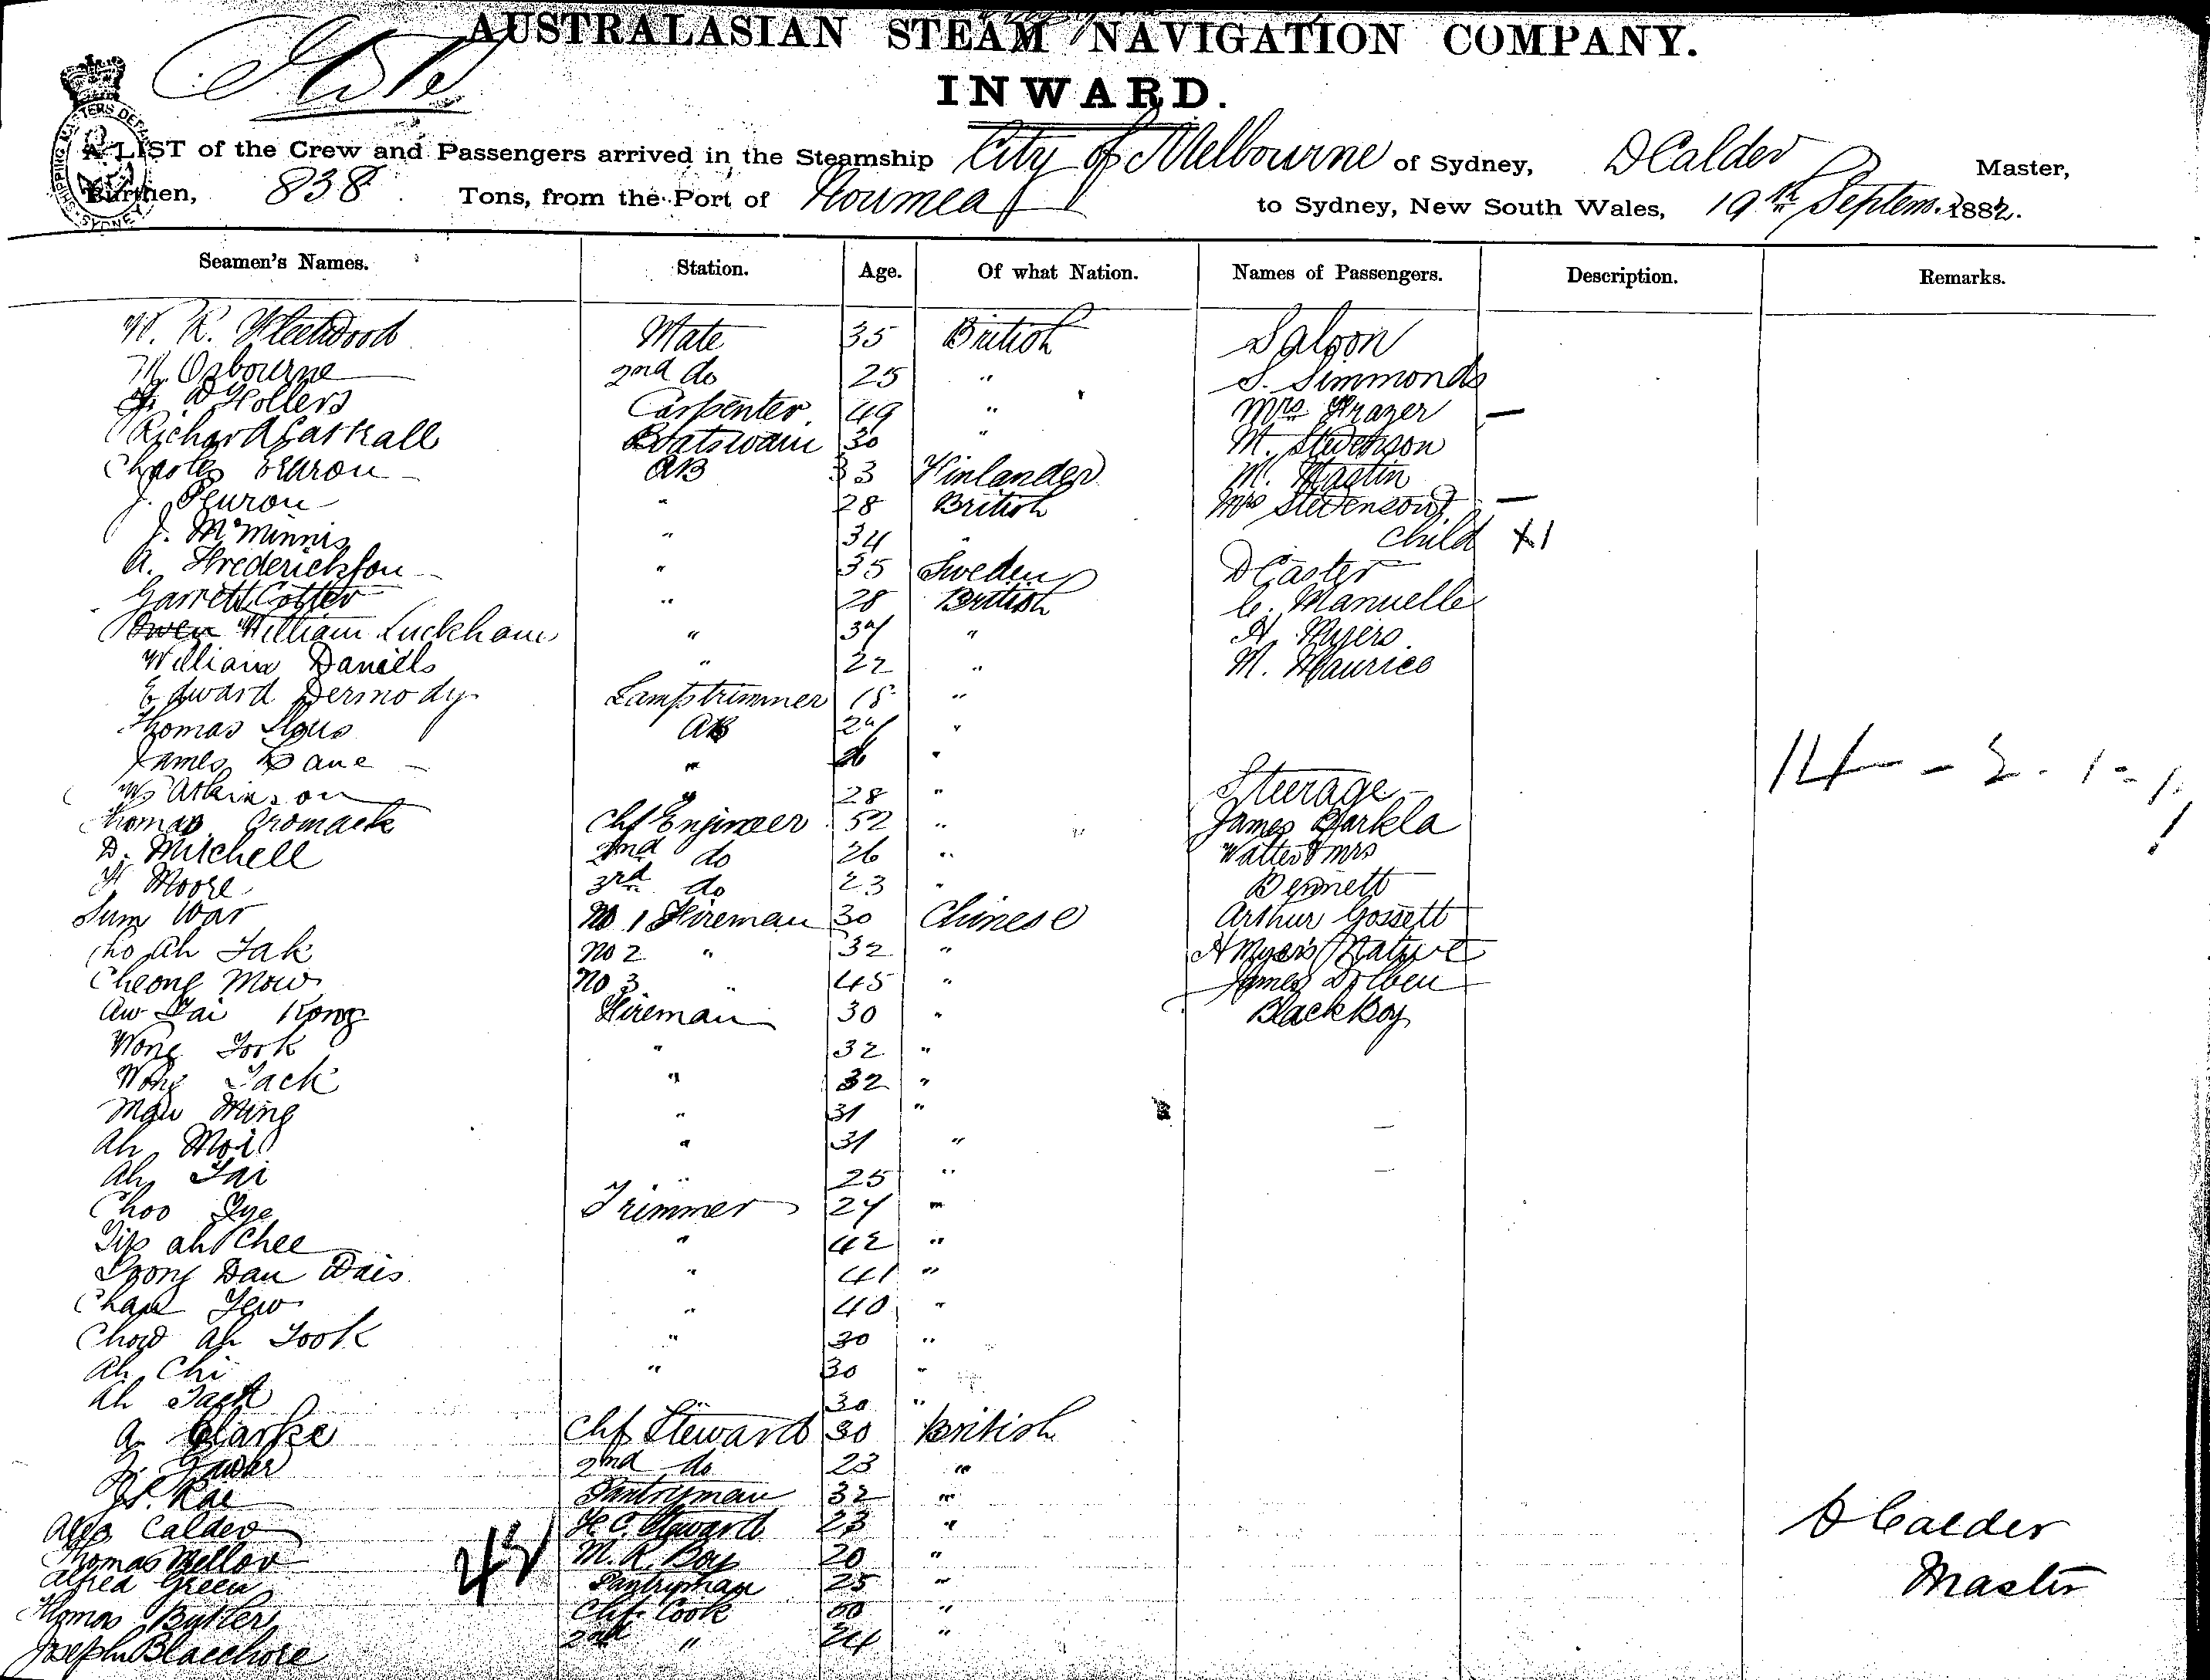 AUSTRALASIAN STEAM NAVIGATION COMPANY.
INWARD.
A LIST of the Crew and Passengers arrived in the Steamship City of Melbourne of Sydney, D Calder Master,
Burthen, 838 Tons, from the Port of Noumea to Sydney, New South Wales, 19th Septem. 1882.
Seamen's Names. Station. Age. Of what Nation. Names of Passengers. Description. Remarks.
W. R. Fleetwood Mate 35 British Saloon
M. Osbourne 2nd do 25 " S. Simmonds
Hollers Carpenter 49 " Mrs Frazer —
Richard Gaskall Boatswain 30 " M. Stevenson
Charles AB 33 Finlander M. Martin
J. Peuron " 28 British Mrs Stevenson —
J. McMinnis " 34 " Child X1
A. Frederickson " 35 Sweden D Caster
Garrett Cotter " 28 British C. Manuelle
Owen William Luckham " 34 " A. Myers
William Daniells " 22 " M. Maurice
Edward Dermody Lamptrimmer 18 "
Thomas AB 24 "
James Lane " 26 "
W Atkinson " 28 " Steerage
Thomas Cromack Chf Engineer 52 " James Sparkla
D. Mitchell 2nd do 26 " Walter & Mrs
H Moore 3rd do 23 " Bennett
Sum War No 1 Fireman 30 Chinese Arthur Gossett
Ho Ah Tak No 2 " 32 " A Myers Native
Cheong Mow No 3 " 45 " James Dolben
Aw Tai Kong Fireman 30 " Black Boy
Wong York " 32 "
Wong Jack " 32 "
Mau Ming " 31 "
Ah Moi " 31 "
Ah Tai " 25 "
Choo Trimmer 24 "
Yip ah Chee " 42 "
Loong Dan Dais " 41 "
Chan Yew " 40 "
Chow Ah Took " 30 "
Ah Chi " 30 "
Ah Jack " 30 "
A. Clarke Chf Steward 30 British
2nd do 23 "
Rae Pantryman 32 "
Alex Calder F. C. Steward 23 " D Calder
Thomas Mellor 43 M. R. Boy 20 "
Alfred Green Pantryman 25 " Master
Thomas Butler Chf Cook "
Joseph Blacehore 2nd " 24 "